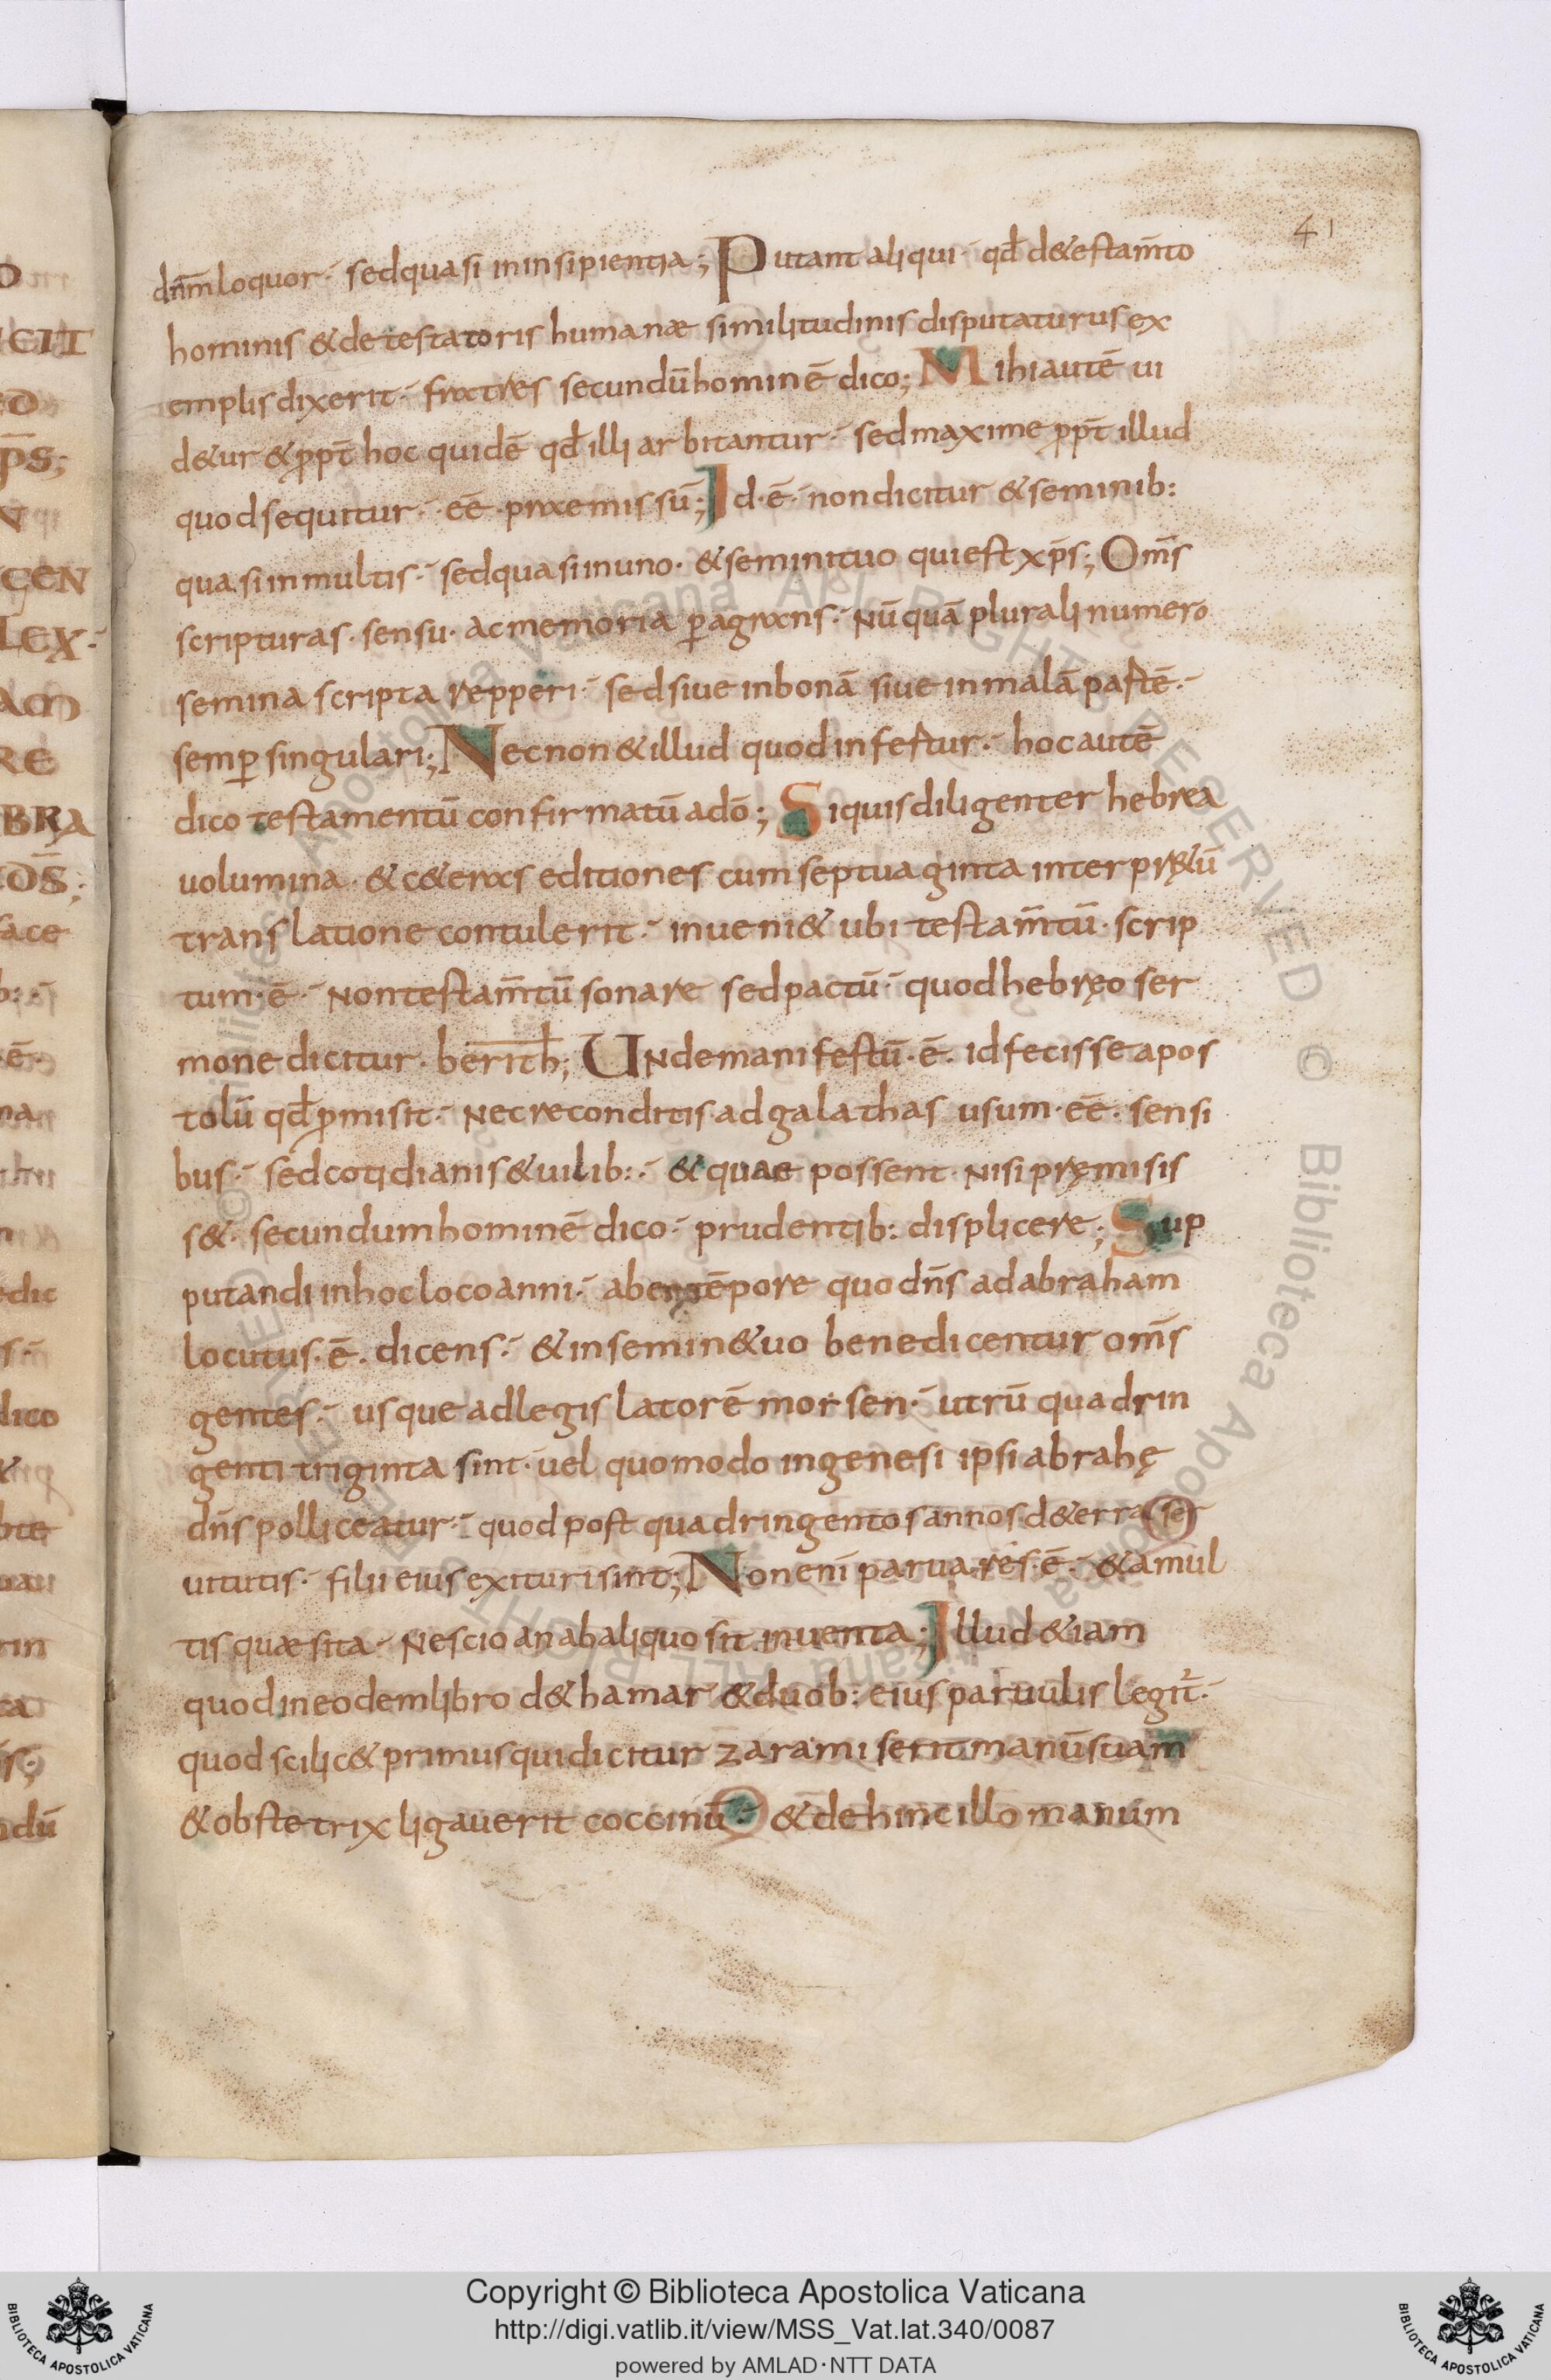 41
dn̄m loquor · sed quasi in insipientia; Putant aliqui · qđ d& estam̄to
hominis & de testatoris humanæ similitudinis disputaturus ex
emplis dixerit · fratres secundū hominē dico; Mihi autē ui
d&ur & ꝓpt̄ hoc quidē qđ illi arbitantur · sed maxime ꝓpt̄ illud
quod sequitur · eē · praemissū; Id · ē · non dicitur & seminib:
quasi in multis · sed quasi in uno · & semini tuo qui est xp̄s; Om̄s
scripturas · sensu · ac memoria ꝑagrans · Nūquā plurali numero
semina scripta repperi · sed siue in bonā siue in malā partē ·
semꝑ singulari; Nec non & illud quod infertur · hoc autē
dico testamentū confirmatū a dō; Si quis diligenter hebrea
uolumina · & c&eras editiones cum septuaginta interpr&ū
translatione contulerit · inueni& ubi testam̄tū · scrip
tum · ē · Non testam̄tū sonare sed pactū · quod hebręo ser
mone dicitur · berith; Unde manifestū · ē · id fecisse apos
tolū qđ ꝓmisit · Nec reconditis ad galathas usum · eē · sensi
bus · sed cotidianis & uilib: · & quae possent · Nisi pręmisis
s& · secundum hominē dico · prudentib: displicere; Sup
putandi in hoc loco anni · ab eo tēpore quo dn̄s ad abraham
locutus · ē · dicens · & in semin& uo benedicentur om̄s
gentes · usque ad legis latorē morsen · utrū quadrin
genti triginta sint · uel quomodo in genesi ipsi abrahę
dn̄s polliceatur · quod post quadringentos annos d& erra ser
uitutis · filii eius exituri sint; Non enī parua res · ē · & a mul
tis quæsita · Nescio an ab aliquo sit inuenta; Illud &iam
quod in eodem libro d& hamar & duob: eius paruulis legit̄ ·
quod scilic& primus qui dicitur zaram i serit manū suam
& obstetrix ligauerit coccinū · & dehinc illo manum
Copyright © Biblioteca Apostolica Vaticana
http://digi.vatlib.it/view/MSS_Vat.lat.340/0087
powered by AMLAD · NTT DATA
BIBLIOTECA APOSTOLICA VATICANA
BIBLIOTECA APOSTOLICA VATICANA